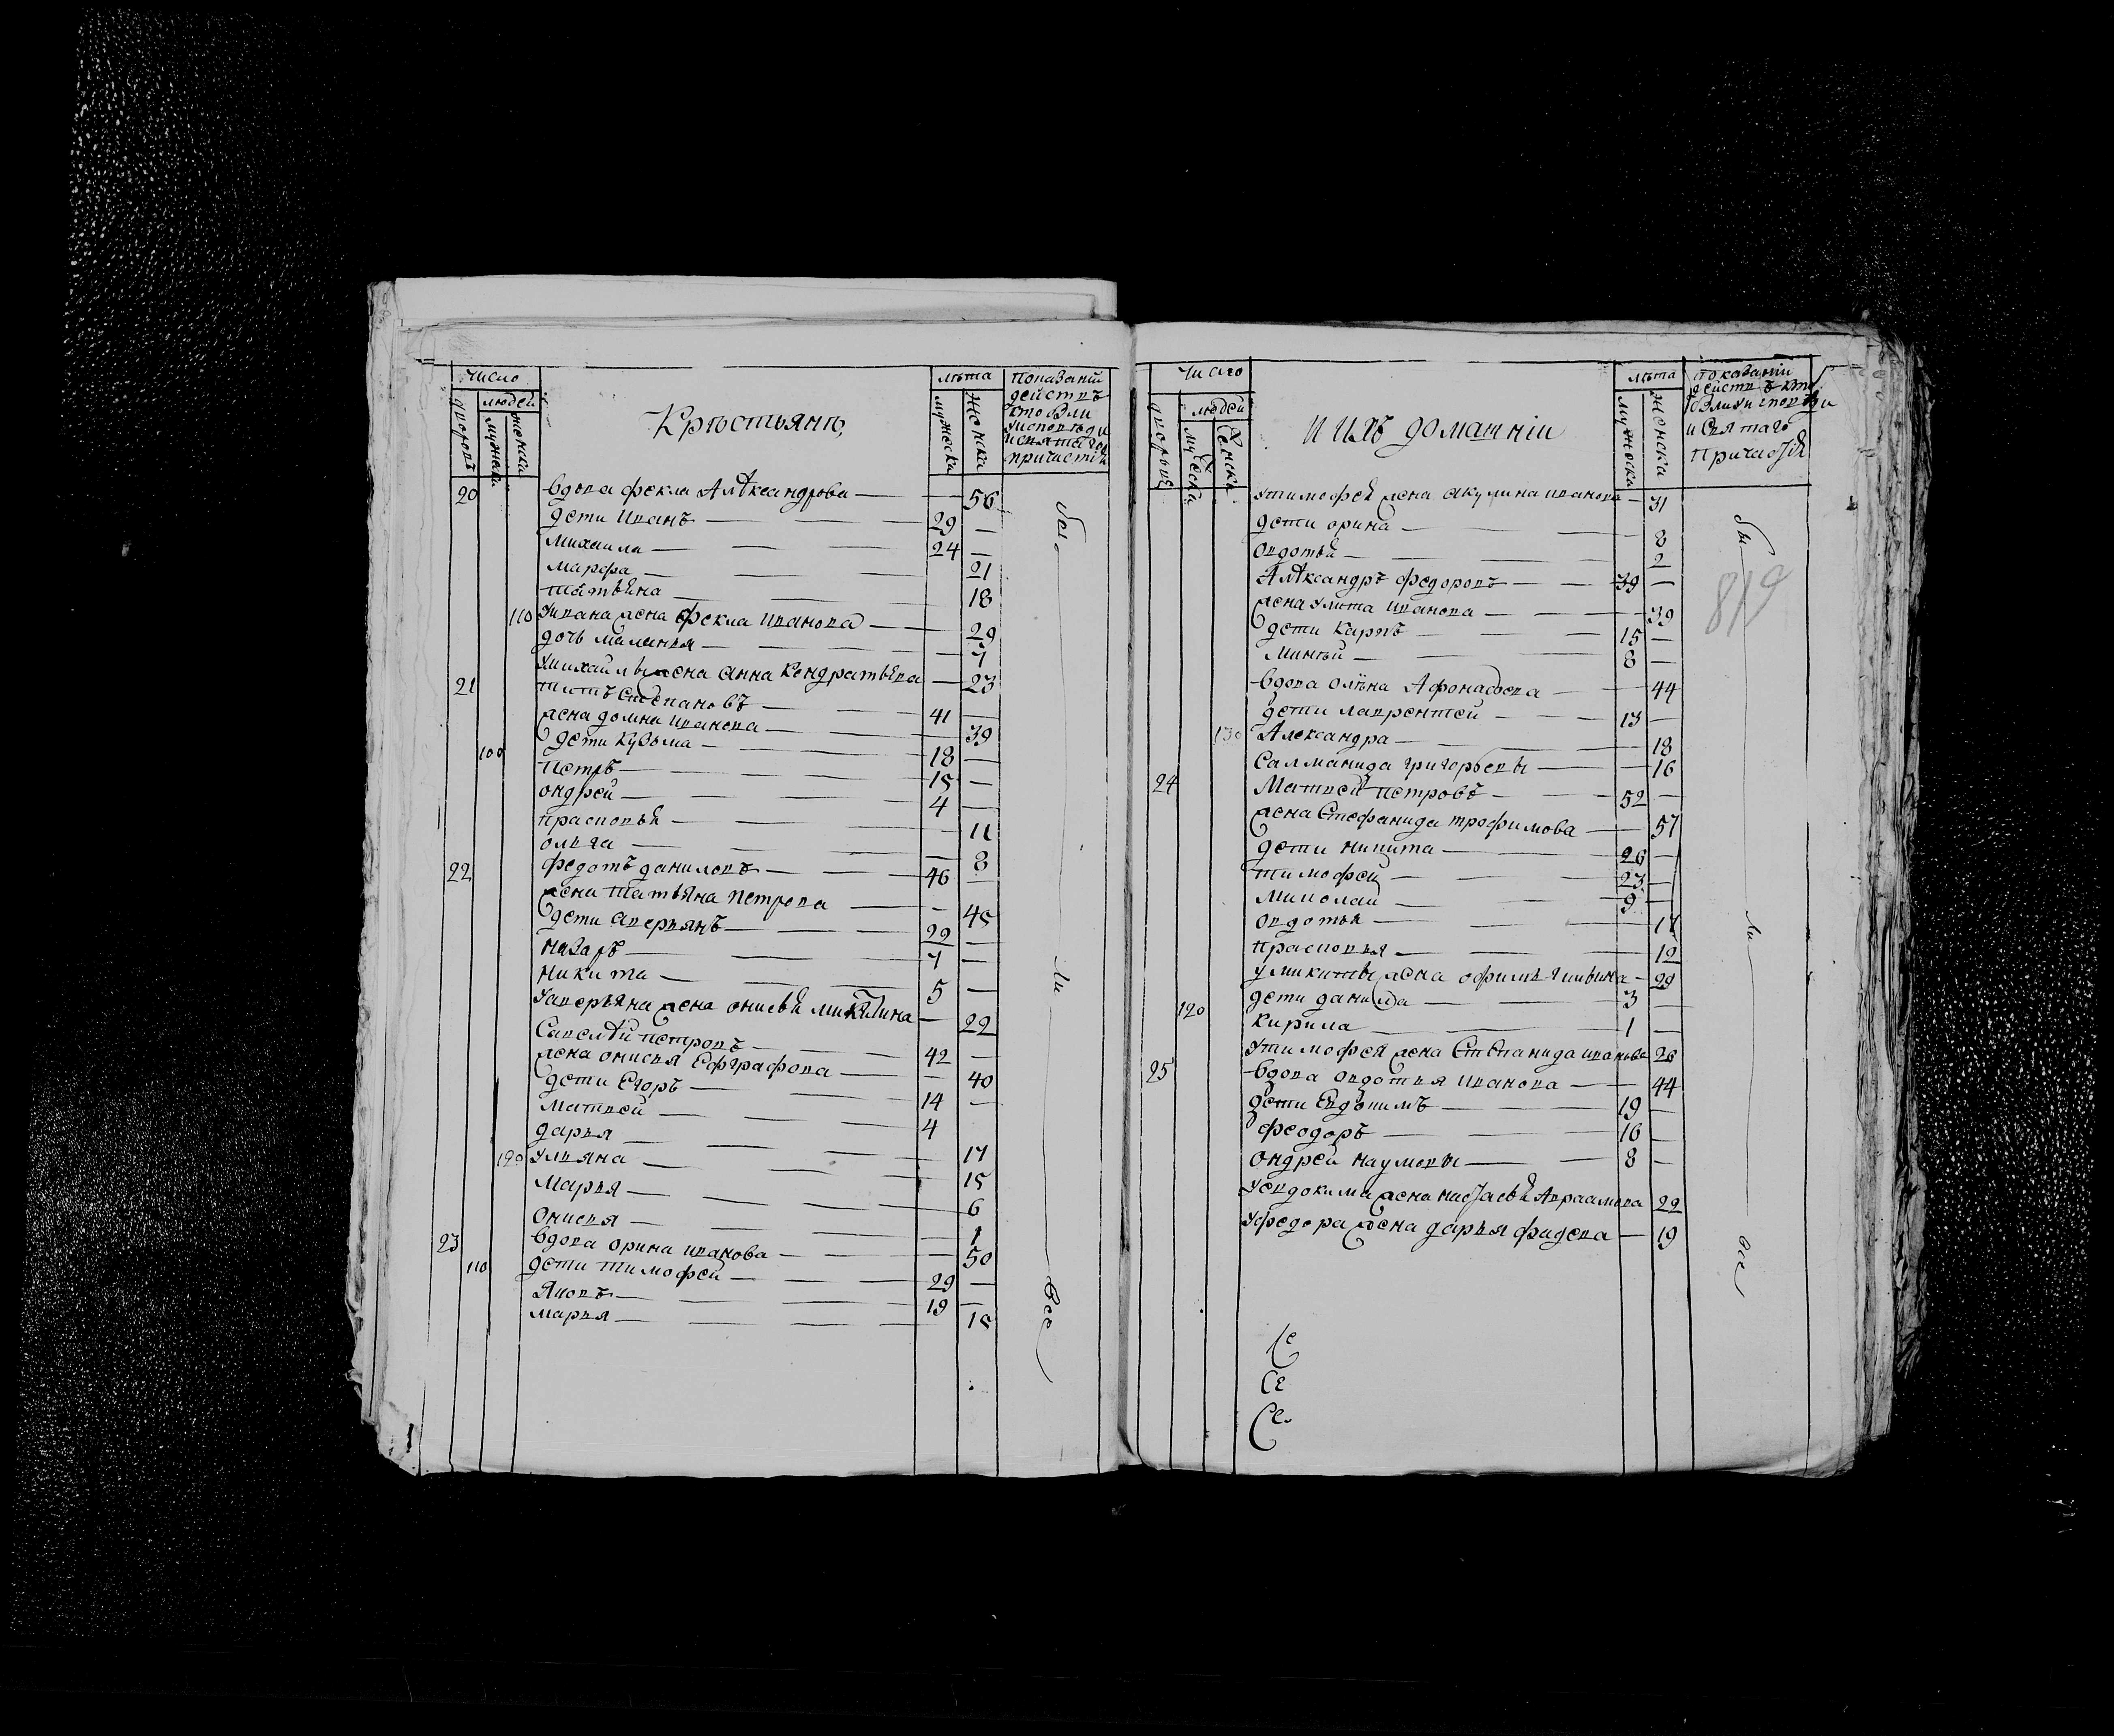 Число
людей
дворовъ
мужска
женска
Крѣстьянѣ
лѣта
мужска
женска
Показаніи
действъ
кто были
у исповѣди
и святаго
причастія
20 вдова фекла Алѣксандрова — 56
дети иванъ — 29 —
михаила — 24 —
марфа — 21
татьяна — 18
110 У ивана жена фекла иванова — 29
дочь маланья — 7
У михайлы жена анна кондратьева — 23
21 титъ степановъ — 41 —
жена домна иванова — 39
100 дети кузьма — 18 —
петръ — 15 —
ондрей — 4 —
прасковья — 11
ольга — 8
22 федотъ даниловъ — 46 —
жена татьяна петрова — 45
дети аверьянъ — 22 —
назаръ — 7 —
никита — 5 —
У аверьяна жена онисья микитина — 22
Савелѣй петровъ — 42 —
жена онисья Ефграфова — 40
дети Егоръ — 14 —
матвей — 4
дарья — 17
120 ульяна — 15
марья — 6
онисья — 1
23 вдова орина иванова — 50
110 дети тимофей — 29 —
Яковъ — 19 —
марья — 15
были
Все
Число
людей
дворовъ
мужска
женска
И ихъ домашніи
лѣта
мужеска
женска
показаніи
действъ кто
были у исповѣди
и святаго
Причастія
У тимофея жена акулина иванова — 31
дети орина — 8
овдотья — 2
Алѣксандръ федоровъ — 39 —
жена улита иванова — 39
дети карпъ — 15 —
минѣй — 8 —
вдова олѣна Афонасьева — 44
дети лаврентей — 13 —
130 Александра — 18
Салманида григорьевы — 16
24 Матвей петровъ — 52 —
жена Стефанида трофимова — 57
дети никита — 26 —
тимофей — 23 —
миколай — 9 —
овдотья — 17
прасковья — 12
у микиты жена офимья ильина — 29
дети данила — 3 —
120 кирила — 1 —
У тимофея жена Степанида иванова 26
25 вдова овдотья иванова — 44
дети Евдокимъ — 19 —
феодоръ — 16 —
ондрей наумовы — 8 —
У евдокима жена настасья Авраамова 22
У федора жена дарья фадеева — 19
бы
ли
все
819